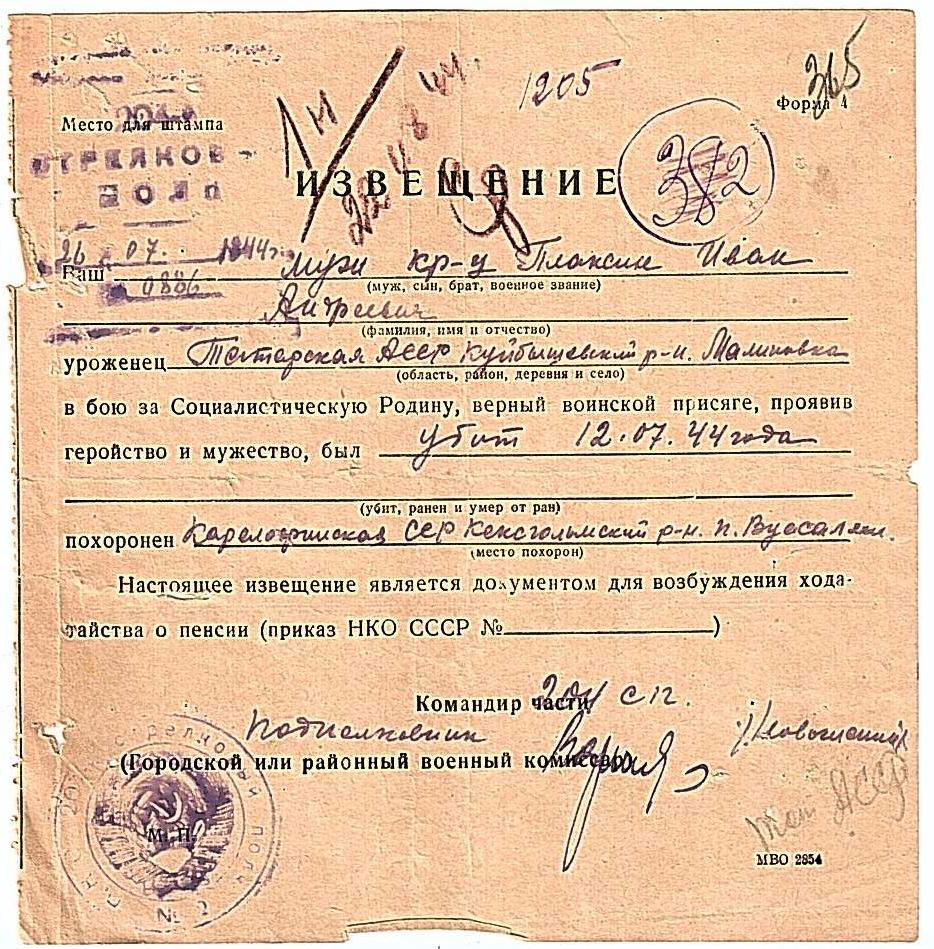 1205
365
Форма 4
Место для штампа
204-й
СТРЕЛКОВ-
ПОЛК
1н
382
ИЗВЕЩЕНИЕ
26 07. 1944г.
0886
Ваш муж кр-ц Плаксин Иван
(муж, сын, брат, военное звание)
Андреевич
(фамилия, имя и отчество)
уроженец Татарская АССР Куйбышевский р-н. Малиновка
(область, район, деревня и село)
в бою за Социалистическую Родину, верный воинской присяге, проявив
геройство и мужество, был убит 12.07.44 года
(убит, ранен и умер от ран)
похоронен Карелофинская ССР Кексгольмский р-н. п. Вуосалми.
(место похорон)
Настоящее извещение является документом для возбуждения хода-
тайства о пенсии (приказ НКО СССР № )
Командир части 204 с п.
подполковник
(Городской или районный военный комиссар)
М. П.
№ 2
АССР
МВО 2854